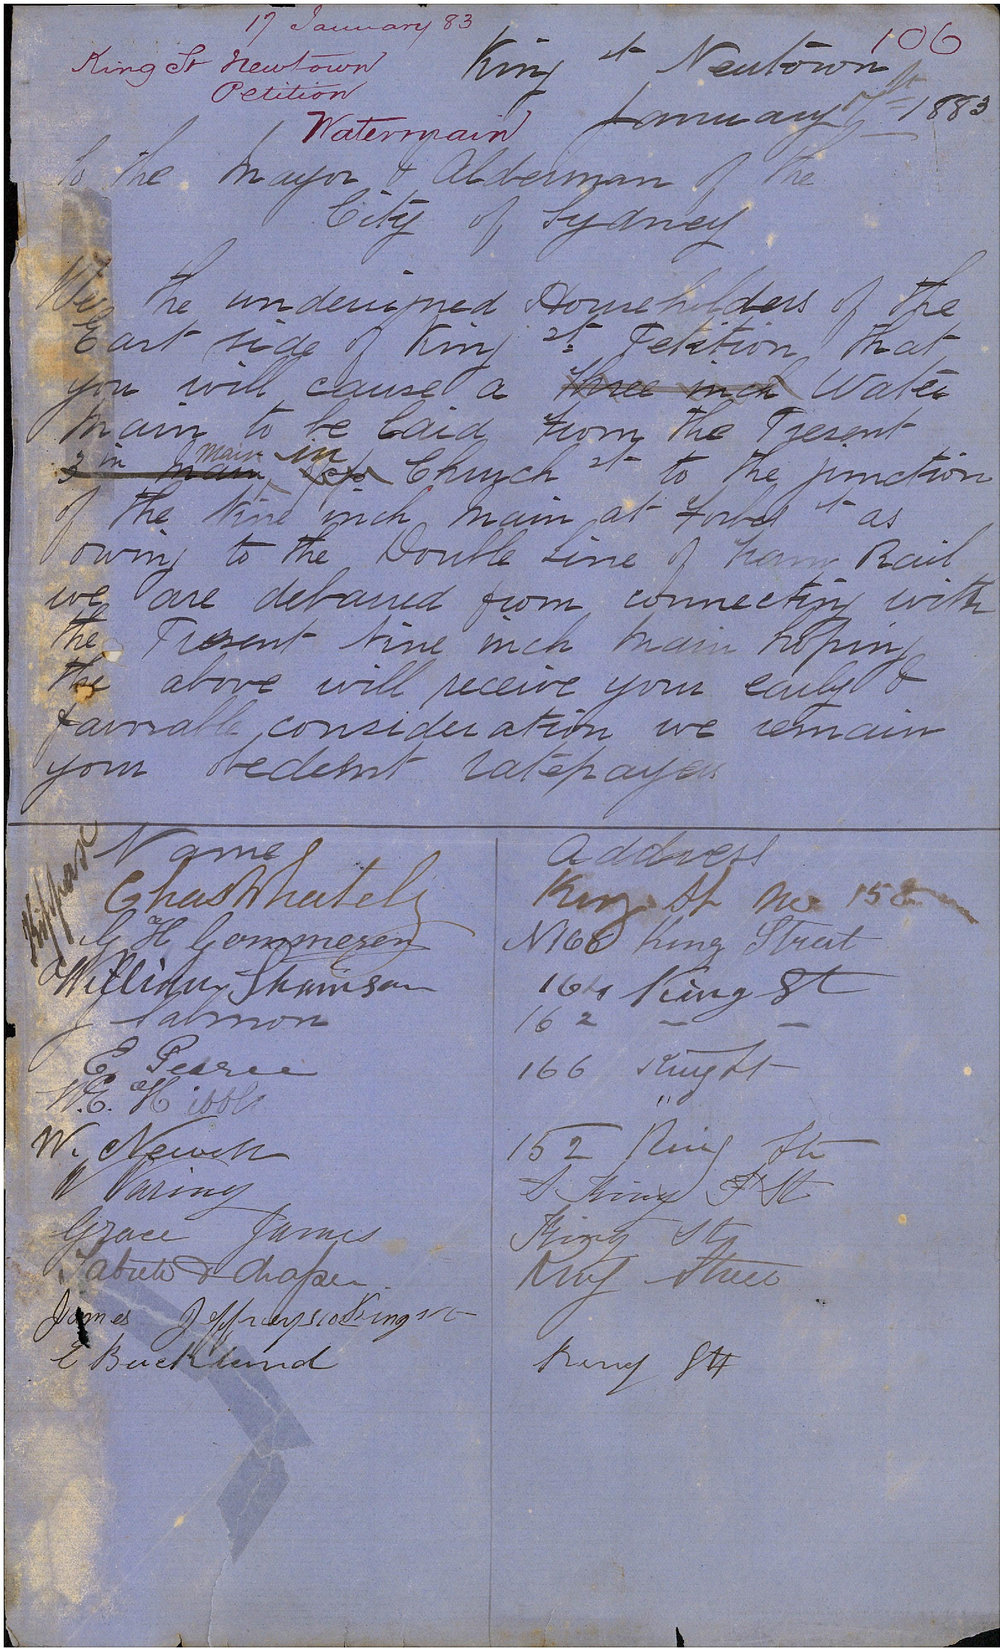 17 January 83
106
King St Newtown
Petition
Watermain
King st Newtown
January 17th 1883
To the Mayor & Alderman of the
City of Sydney
We the undersigned Householders of the
East side of King st Petition that
you will cause a three inch Water
Main to be laid from the Present
3 in Main Main in Church st to the junction
of the Nine inch Main at Forbes st as
owing to the Double Line of Tram Rail
we are debarred from connecting with
the Present Nine inch Main hoping
the above will receive your early &
favorable consideration we remain
your obedient ratepayers
Name Address
Chas Whately King St No 158
G H Gommesen No 166 King Street
William 164 King St
J Salmon 162 " "
E. Pearce 166 King St
W.E. "
W. Newell 152 King St
W Waring King St
Grace James King St
& Draper King Street
James Jeffreys King St
E Buckland King St